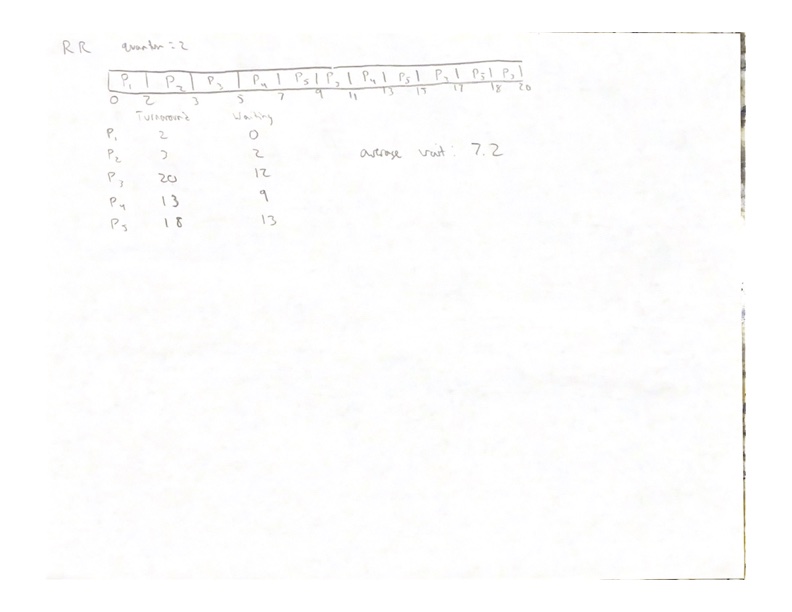 RR quantum = 2
P1 P2 P3 P4 P5 P3 P4 P5 P3 P5 P3
0 2 3 5 7 9 11 13 15 17 18 20
Turnaround Waiting
P1 2 0
P2 3 2
P3 20 12
P4 13 9
P5 18 13
average wait: 7.2